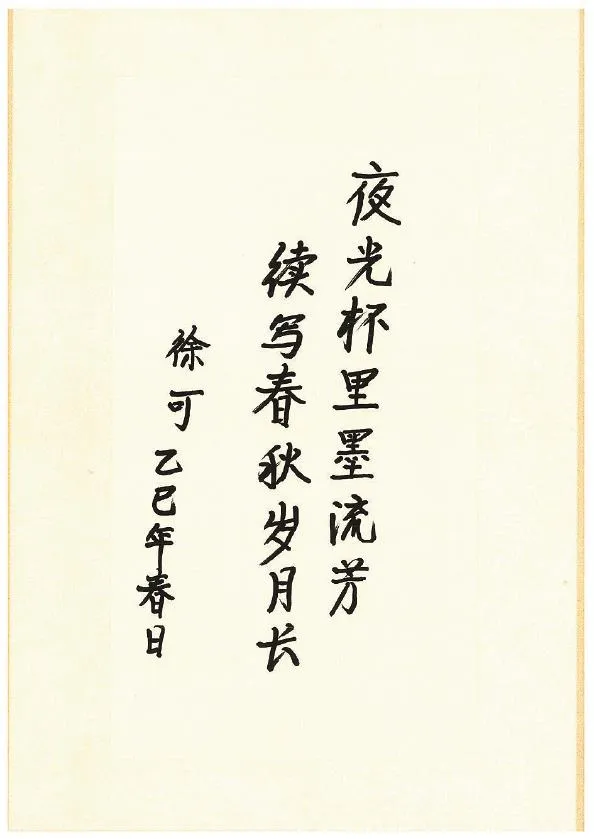 夜光杯里墨流芳
续写春秋岁月长
徐可 乙巳年春日